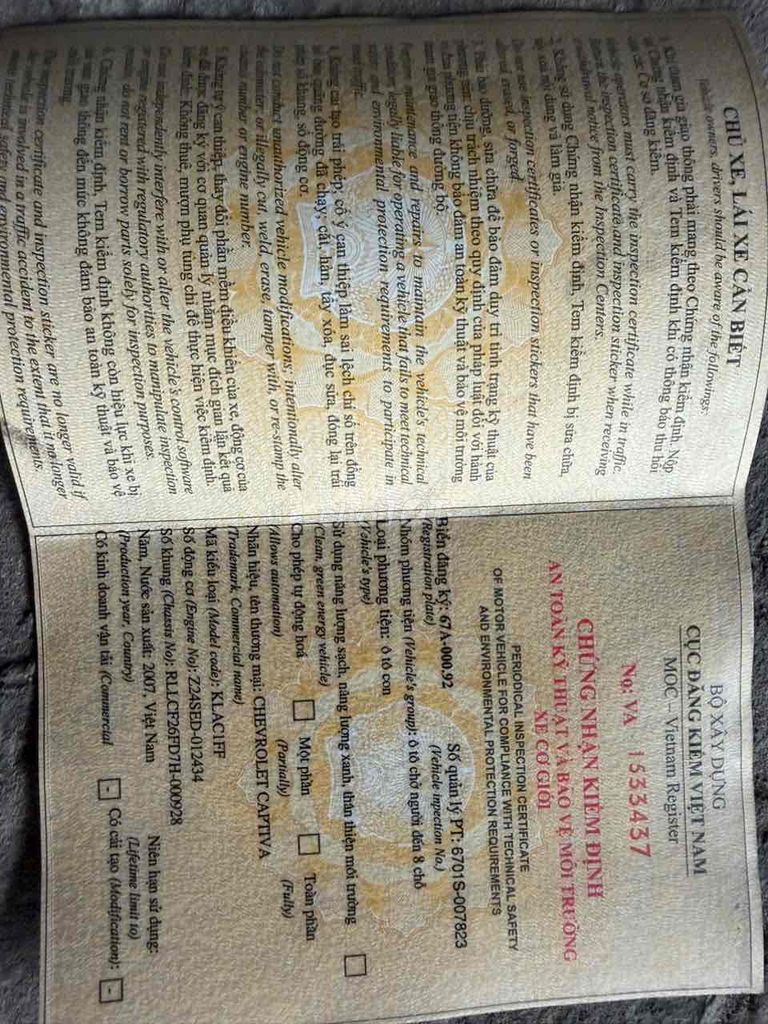 CHỦ XE, LÁI XE CẦN BIẾT
Vehicle owners, drivers should be aware of the followings:
1. Khi tham gia giao thông phải mang theo Chứng nhận kiểm định. Nộp
lại Chứng nhận kiểm định và Tem kiểm định khi có thông báo thu hồi
của các Cơ sở đăng kiểm.
Vehicle operators must carry the inspection certificate while in traffic.
Return the inspection certificate and inspection sticker when receiving
a withdrawal notice from the Inspection Centers.
2. Không sử dụng Chứng nhận kiểm định, Tem kiểm định bị sửa chữa,
tẩy xóa nội dung và làm giả.
Do not use inspection certificates or inspection stickers that have been
altered, erased, or forged.
3. Phải bảo dưỡng, sửa chữa để bảo đảm duy trì tình trạng kỹ thuật của
phương tiện; chịu trách nhiệm theo quy định của pháp luật đối với hành
vi đưa phương tiện không bảo đảm an toàn kỹ thuật và bảo vệ môi trường
tham gia giao thông đường bộ.
Perform maintenance and repairs to maintain the vehicle's technical
condition; legally liable for operating a vehicle that fails to meet technical
safety and environmental protection requirements to participate in
road traffic.
4. Không cải tạo trái phép; cố ý can thiệp làm sai lệch chỉ số trên đồng
hồ báo quãng đường đã chạy; cắt, hàn, tẩy xóa, đục sửa, đóng lại trái
phép số khung, số động cơ.
Do not conduct unauthorized vehicle modifications; intentionally alter
the odometer; or illegally cut, weld, erase, tamper with, or re-stamp the
chassis number or engine number.
5. Không tự ý can thiệp, thay đổi phần mềm điều khiển của xe, động cơ của
xe đã được đăng ký với cơ quan quản lý nhằm mục đích gian lận kết quả
kiểm định; Không thuê, mượn phụ tùng chỉ để thực hiện việc kiểm định.
Do not independently interfere with or alter the vehicle's control software
or engine registered with regulatory authorities to manipulate inspection
results; do not rent or borrow parts solely for inspection purposes.
6. Chứng nhận kiểm định, Tem kiểm định không còn hiệu lực khi xe bị
tai nạn giao thông đến mức không đảm bảo an toàn kỹ thuật và bảo vệ
môi trường.
The inspection certificate and inspection sticker are no longer valid if
the vehicle is involved in a traffic accident to the extent that it no longer
meets technical safety and environmental protection requirements.
BỘ XÂY DỰNG
CỤC ĐĂNG KIỂM VIỆT NAM
MOC – Vietnam Register
No: VA 1533437
CHỨNG NHẬN KIỂM ĐỊNH
AN TOÀN KỸ THUẬT VÀ BẢO VỆ MÔI TRƯỜNG
XE CƠ GIỚI
PERIODICAL INSPECTION CERTIFICATE
OF MOTOR VEHICLE FOR COMPLIANCE WITH TECHNICAL SAFETY
AND ENVIRONMENTAL PROTECTION REQUIREMENTS
Biển đăng ký: 67A-000.92 Số quản lý PT: 6701S-007823
(Registration plate) (Vehicle inpection No.)
Nhóm phương tiện (Vehicle's group): ô tô chở người đến 8 chỗ
Loại phương tiện: ô tô con
(Vehicle's type)
Sử dụng năng lượng sạch, năng lượng xanh, thân thiện môi trường
(Clean, green energy vehicle)
Cho phép tự động hoá Một phần Toàn phần
(Allows automation) (Partially) (Fully)
Nhãn hiệu, tên thương mại: CHEVROLET CAPTIVA
(Trademark, Commercial name)
Mã kiểu loại (Model code): KLAC1FF
Số động cơ (Engine No): Z24SED-012434
Số khung (Chassis No): RLLCF26FD7H-000928
Năm, Nước sản xuất: 2007, Việt Nam Niên hạn sử dụng:
(Production year, Country) (Lifetime limit to)
Có kinh doanh vận tải (Commercial - Có cải tạo (Modification): -